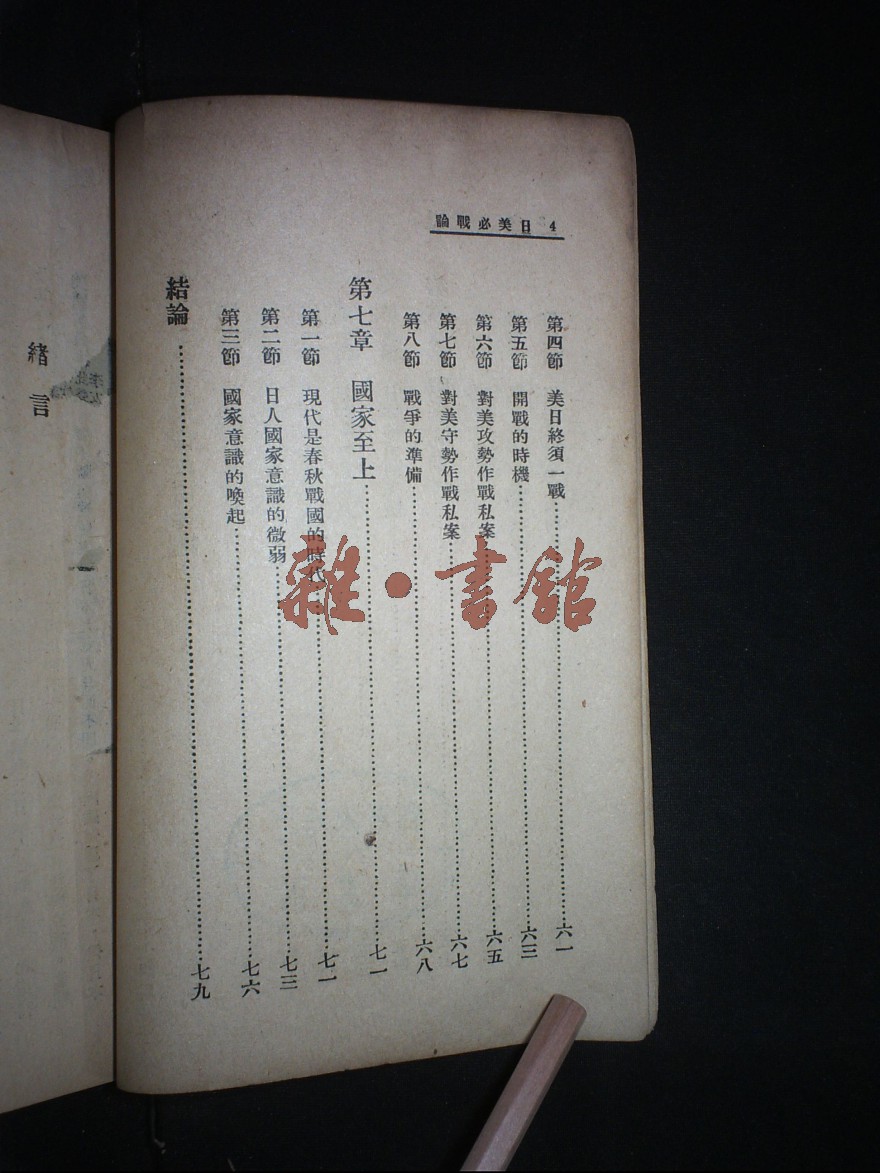 4 日美必戰論
第四節 美日終須一戰……六一
第五節 開戰的時機……六三
第六節 對美攻勢作戰私案……六五
第七節 對美守勢作戰私案……六七
第八節 戰爭的準備……六八
第七章 國家至上……七一
第一節 現代是春秋戰國的時代……七一
第二節 日人國家意識的微弱……七三
第三節 國家意識的喚起……七六
結論……七九
緒言
雜·書館